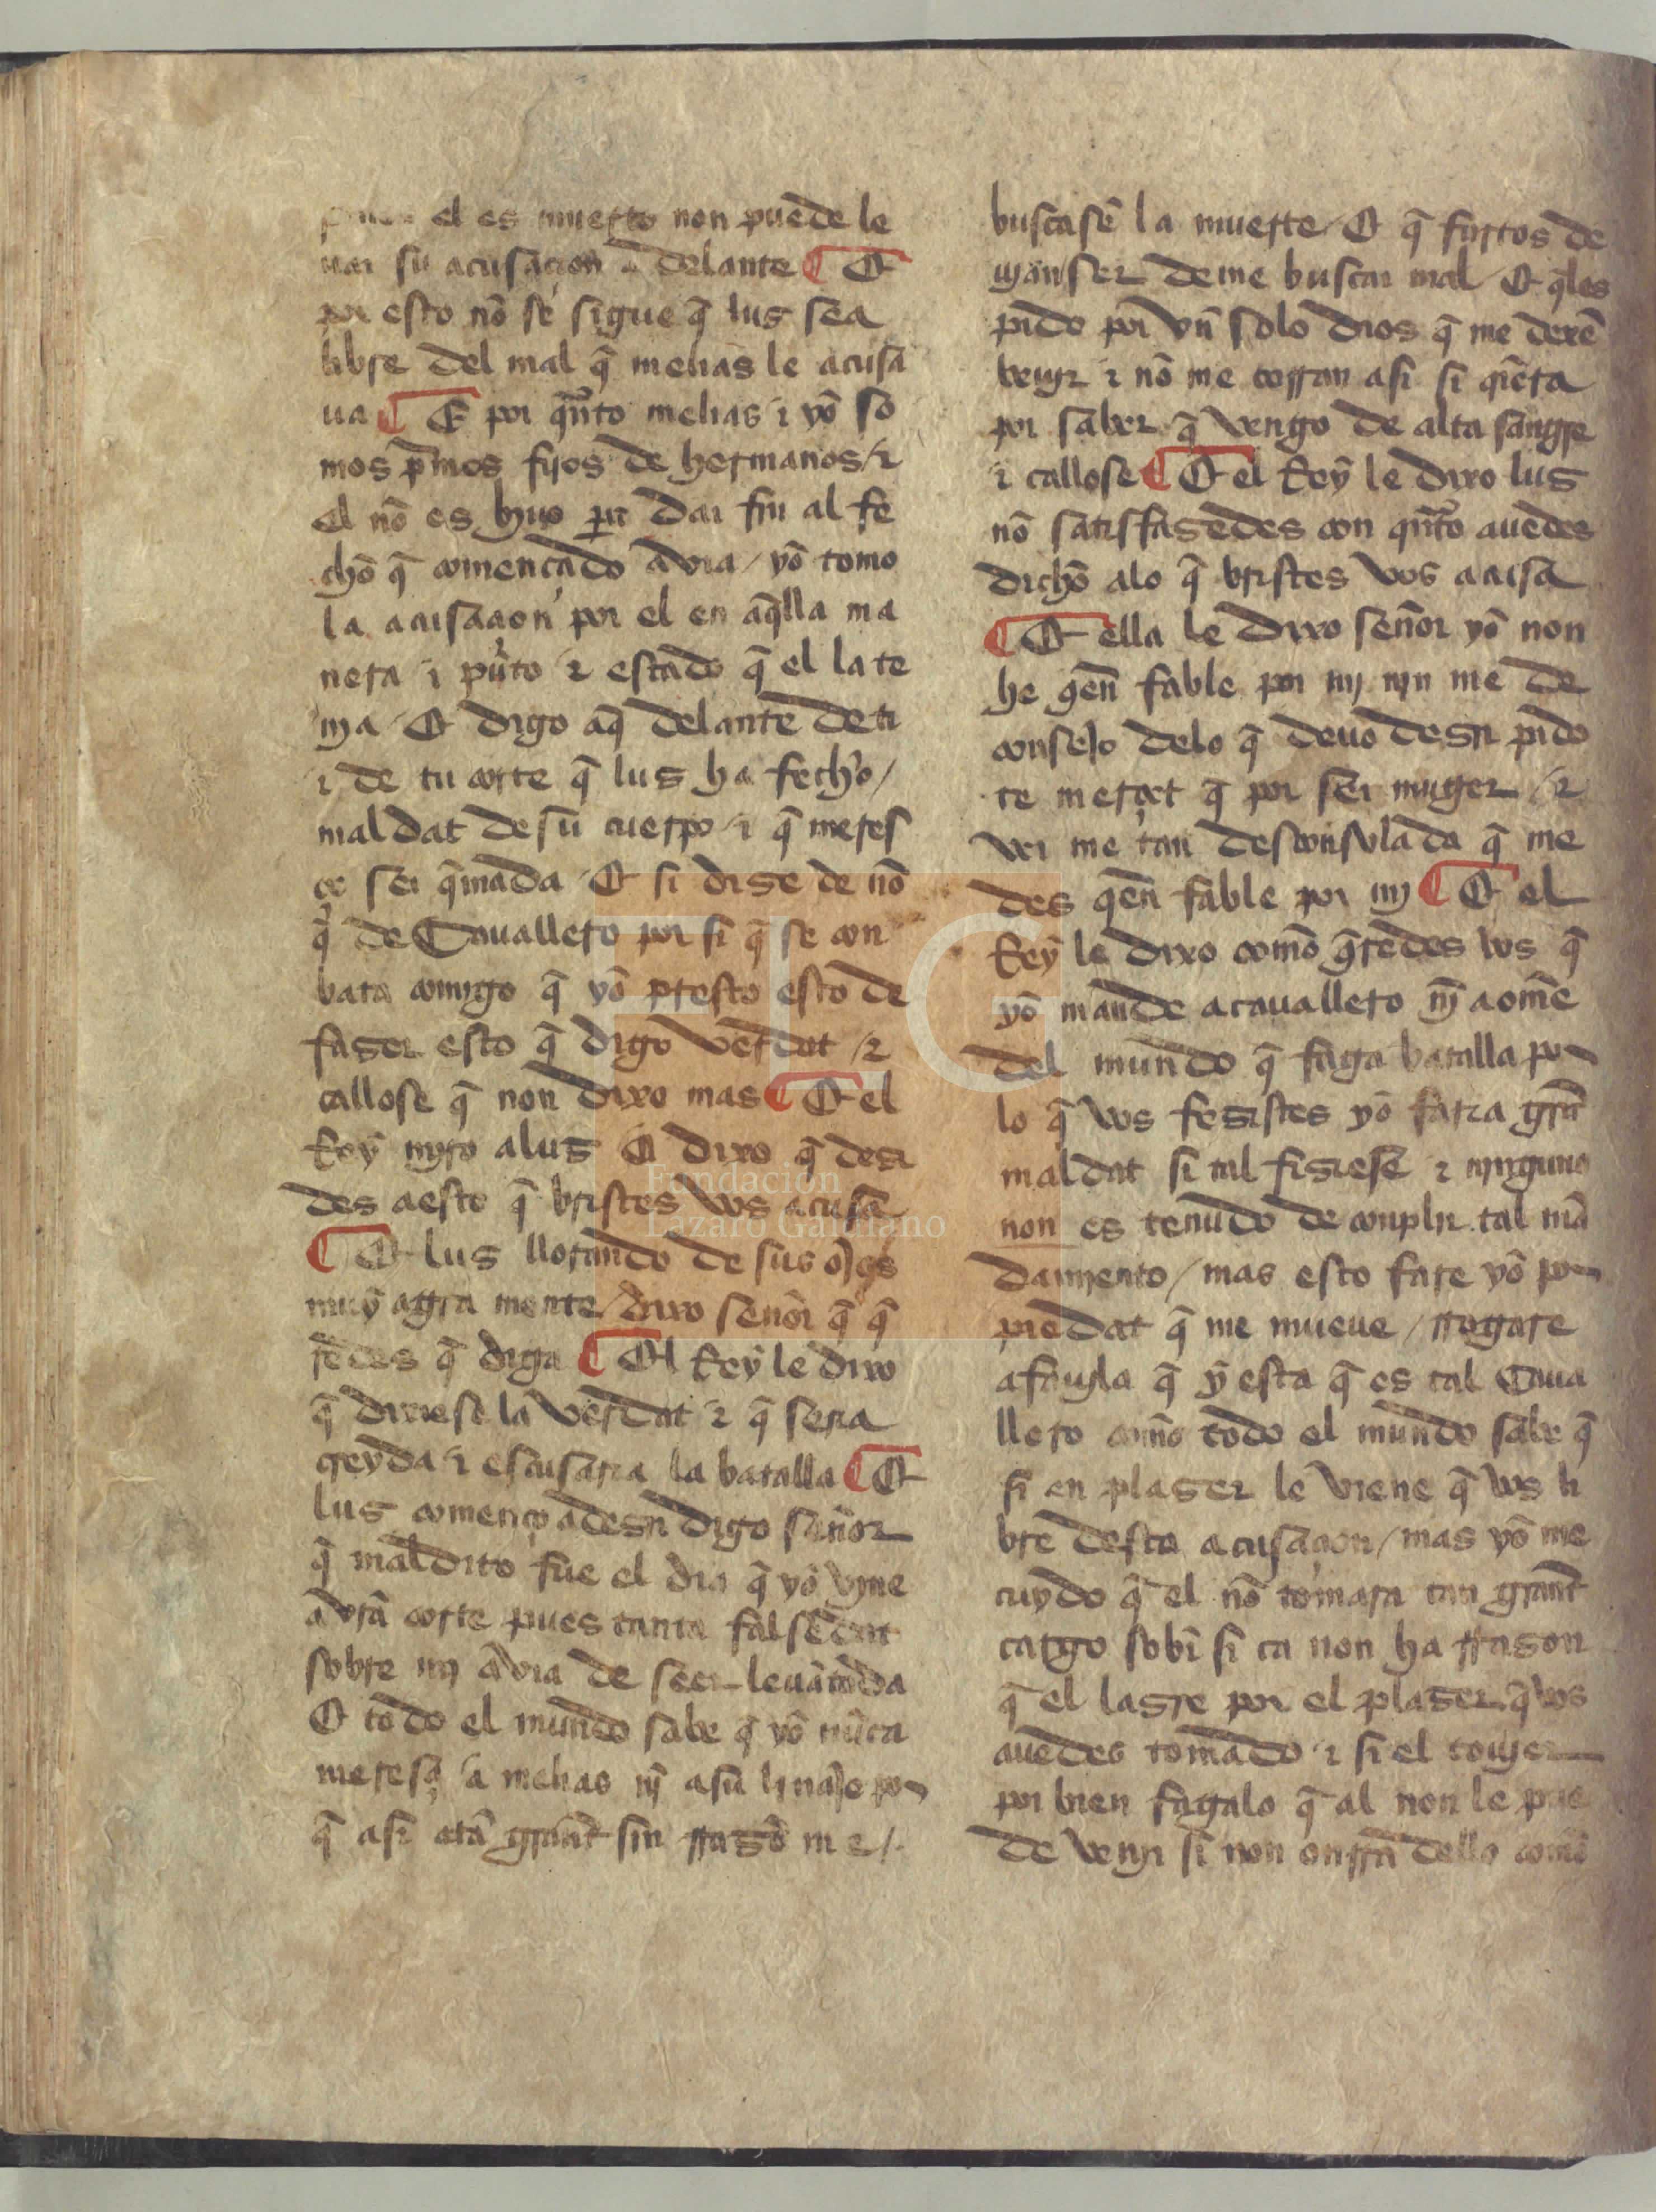 el es muerto non puede le
uar su acusaçion a delante ¶ E
por esto nõ se sigue q̃ lus sea
libre del mal q̃ melias le acusa
ua ¶ E por q̃nto melias ⁊ yõ so
mos p̃mos fijos de hermanos / ⁊
El nõ es biuo par dar fin al fe
chõ q̃ començado avia / yõ tomo
la acusaçion por el en aq̃lla ma
nera ⁊ pũto ⁊ estado q̃ el la te
nja / E digo aq̃ delante de ti
⁊ de tu corte q̃ lus ha fecho /
maldat de su cuerpo ⁊ q̃ meres
çe ser q̃mada / E si dise de nõ
q̃ de Cauallero por si q̃ se con
bata comigo q̃ yõ presto esto de
faser esto q̃ digo verdat / ⁊
callose q̃ non dixo mas ¶ E el
Rey mjro a lus E dixo q̃ desi
des a esto q̃ bristes vos acusa
¶ E lus llorando de sus ojos
muy agra mente / dixo señor q̃ q̃
redes q̃ diga ¶ El Rey le dixo
q̃ dixiese la verdat ⁊ q̃ seria
qeyda ⁊ escusaria la batalla ¶ E
lus començo a desir digo señor
q̃ maldito fue el dia q̃ yõ vjne
a vrã corte pues tanta falsedat
sobre mj avia de seer leuãtada
E todo el mundo sabe q̃ yõ nũca
meresçi a melias nj̃ a su linaje por
q̃ asi atã grant sin rrasõ me /.
buscasẽ la muerte / E q̃ furtos de
manser de me buscar mal / E q̃les
pido por vñ solo dios q̃ me dexẽ
beujr ⁊ nõ me corran asi si q̃era
por saber q̃ vengo de alta sangre
⁊ callose ¶ E el Rey le dixo lus
nõ satisfasedes con q̃nto auedes
dichõ alo q̃ bristes vos acusa
¶ E ella le dixo señor yõ non
he q̃en fable por mj njn me de
consejo delo q̃ deuo desir pido
te merçet q̃ por ser muger / ⁊
ver me tan desconsolada q̃ me
des q̃en fable por mj ¶ E el
Rey le dixo comõ q̃redes vos q̃
yõ mande a cauallero nj̃ a omẽ
del mundo q̃ faga batalla por
lo q̃ vos fesistes yõ faria grã
maldat si tal fisiese ⁊ njnguno
non es tenudo de conplir tal mã
damjento / mas esto fare yõ por
piedat q̃ me mueue / rrogare
a faujla q̃ y esta q̃ es tal Caua
llero comõ todo el mundo sabe q̃
si en plaser le viene q̃ vos li
bre desta acusaçion / mas yõ me
cuydo q̃ el nõ tomara tan grant
cargo sobr̃ si ca non ha rrason
q̃ el lasre por el plaser q̃ vos
auedes tomado ⁊ si el toujer
por bien fagalo q̃ al non le pue
de venjr si non onrra dello comõ